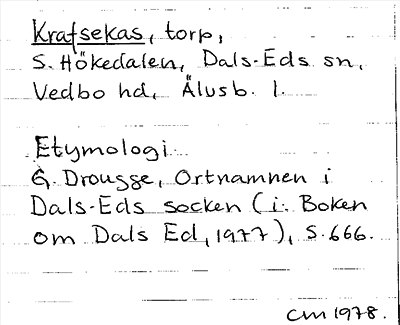 Krafsekas, torp,
S. Hökedalen, Dals-Eds sn,
Vedbo hd, Älvsb. l.
Etymologi:
G. Drougge, Ortnamnen i
Dals-Eds socken (i: Boken
om Dals Ed, 1977), s. 666.
CM 1978.